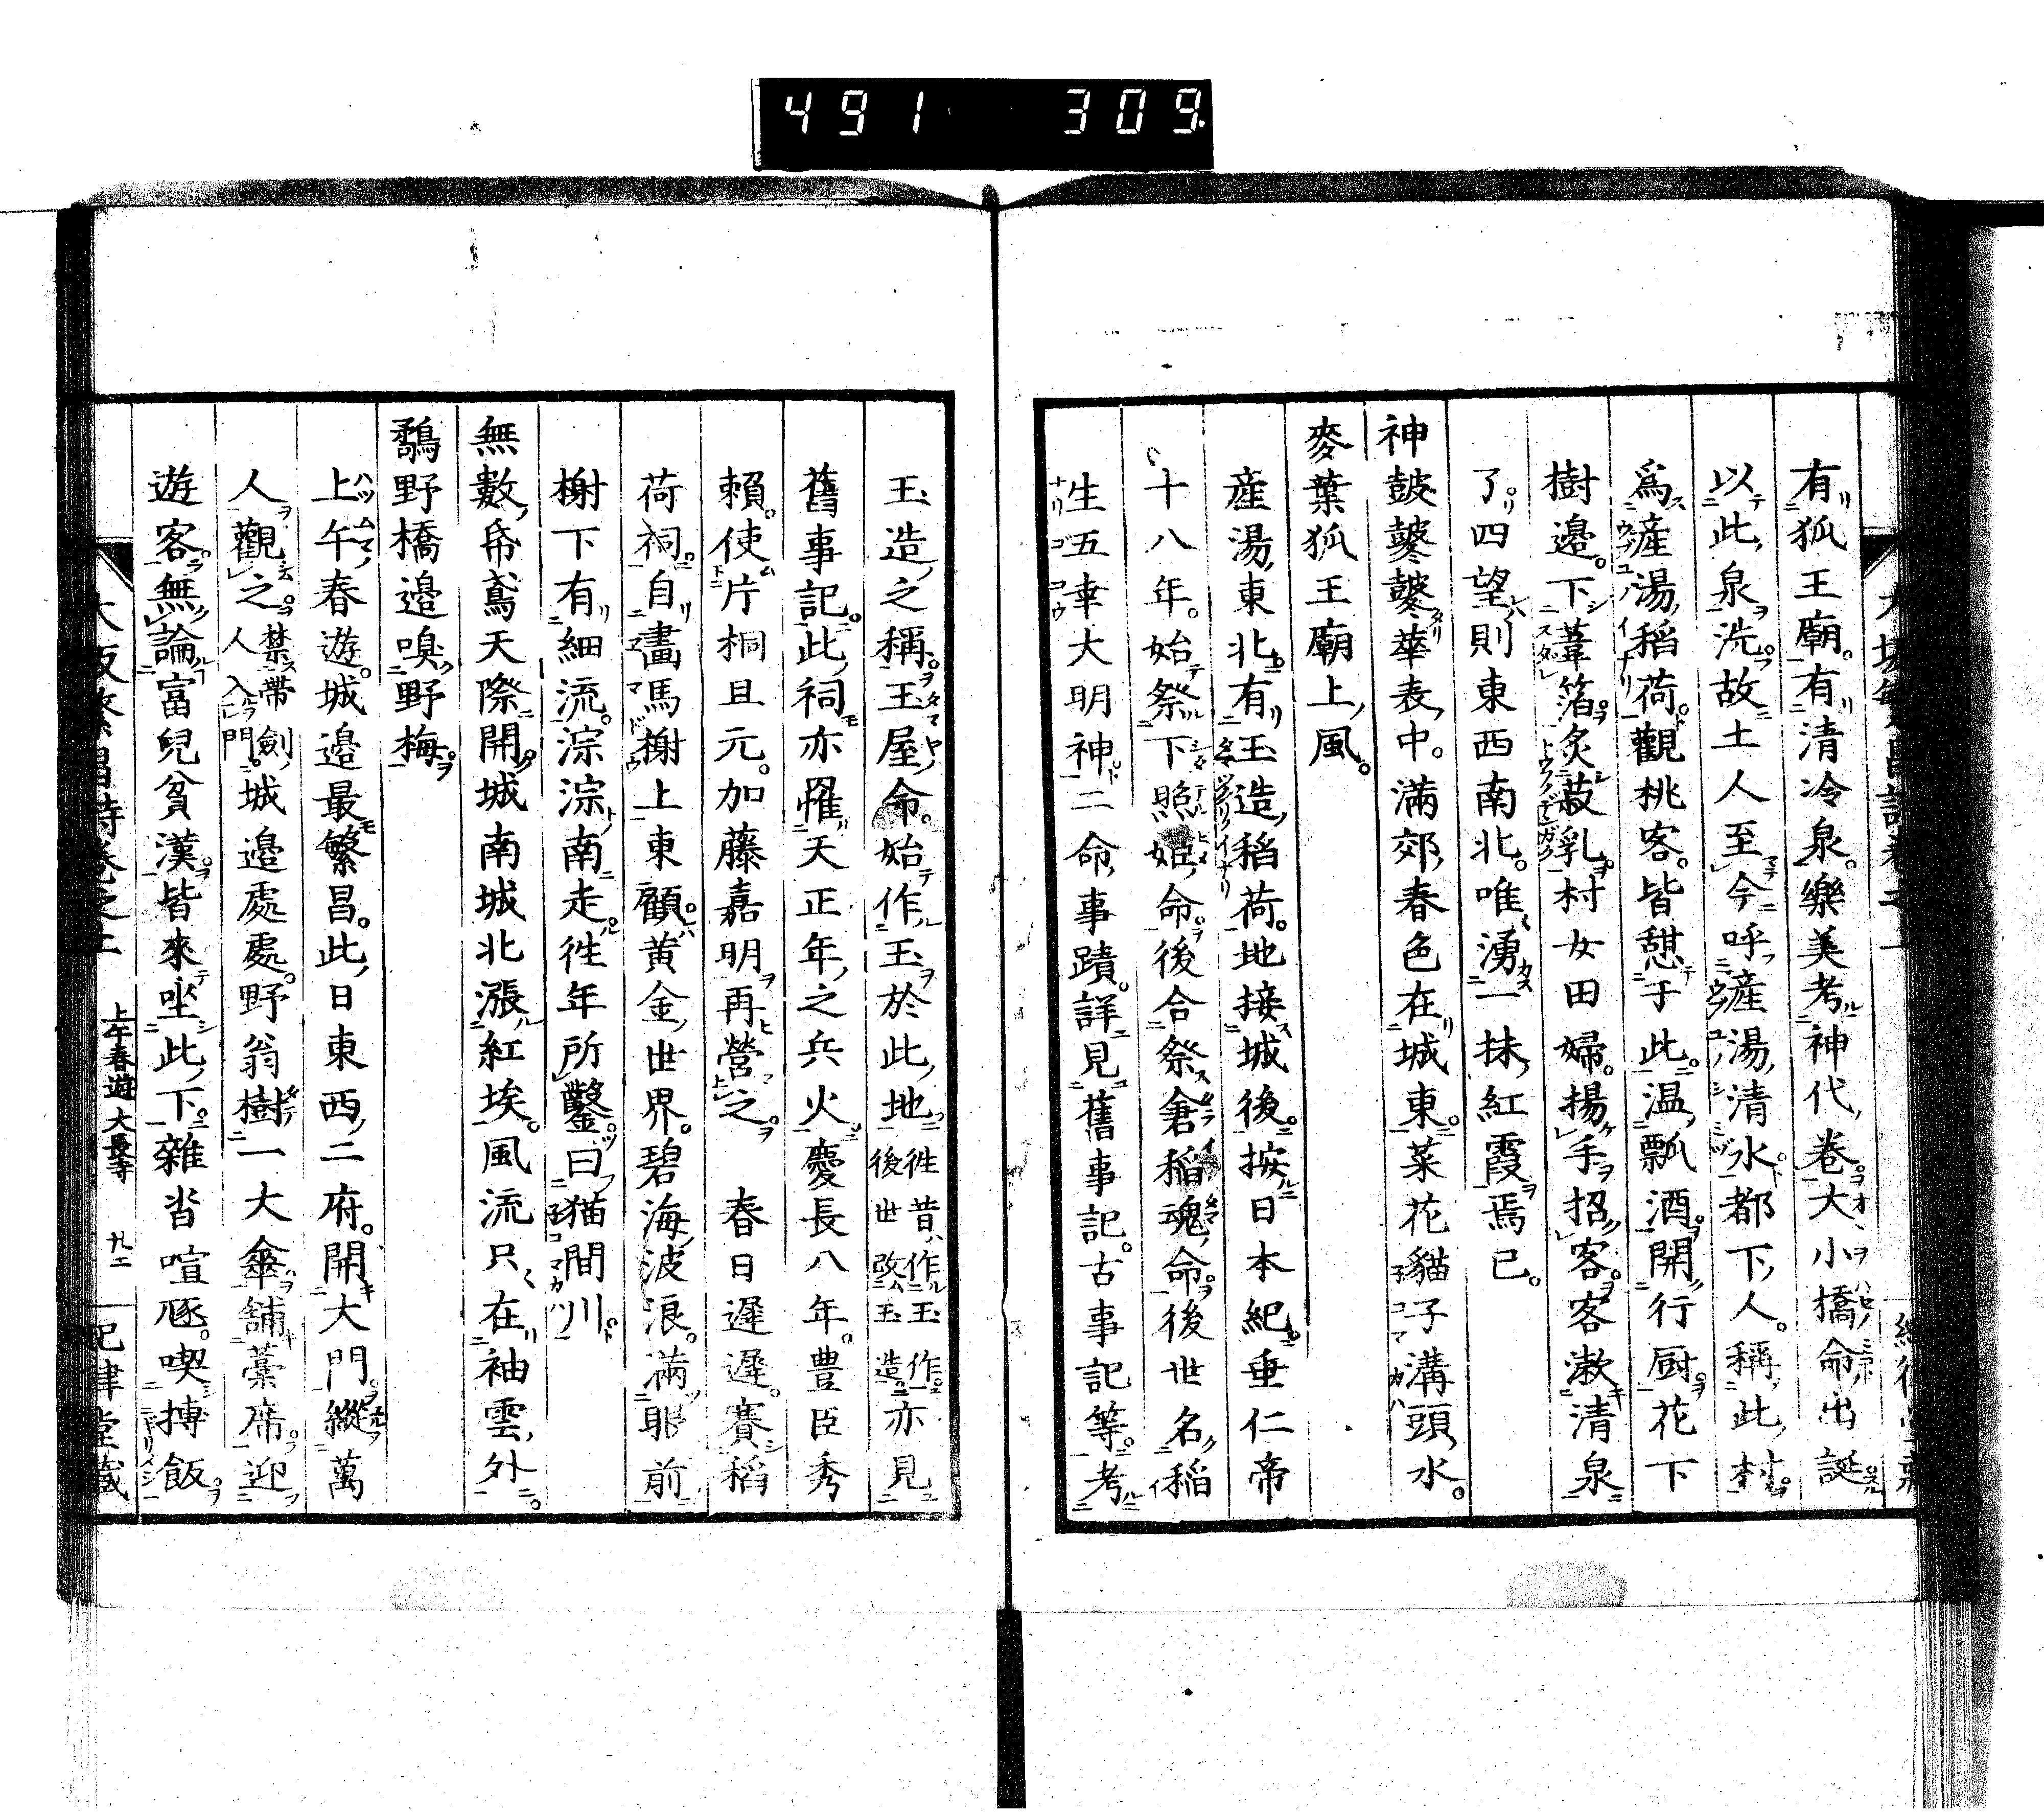 491 309
有狐王廟。有清冷泉。樂美考神代卷大小橋命出誕
以此泉洗故土人至今呼產湯清水都下人。稱此村
爲產湯稻荷。觀桃客。皆憇于此。温瓢酒開行厨花下
樹邉。下葦箔炙菽乳村女田婦。揚手招客。客漱清泉
了。四望則東西南北。唯湧一抹紅霞焉已。
神鼓鼕鼕華表中。滿郊春色在城東。菜花貓子溝頭水。
麥葉狐王廟上風。
產湯東北有玉造稻荷。地接城後。按日本紀。垂仁帝
十八年。始祭下照姫命後合祭倉稻魂命後世名稻
生五幸大明神二命事蹟。詳見舊事記。古事記等。考
玉造之稱。玉屋命。始作玉於此地往昔作玉作
後世改玉造亦見
舊事記。此祠亦罹天正年之兵火慶長八年。豊臣秀
賴。使片桐且元。加藤嘉明再營之 春日遲遲。賽稻
荷祠。自畵馬榭上東顧。黄金世界。碧海波浪。滿耶前
榭下有細流。淙淙南走。徃年所鑿。曰猫間川。
無數帋鳶天際開。城南城北漲紅埃。風流只在袖雲外。
鷸野橋邉嗅野梅。
上午春遊。城邉最繁昌。此日東西二府。開大門縱萬
人觀之。禁帶劍
人入門。城邉處處。野翁樹一大傘舖藁席迎
遊客。無論富兒貧漢。皆來坐此下雜沓喧豗。喫摶飯
上午春遊 大長寺
九二